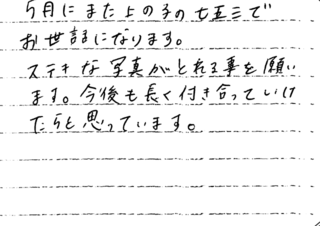 5月にまた上の子の七五三で
お世話になります。
ステキな写真がとれる事を願い
ます。今後も長く付き合っていけ
たらと思っています。